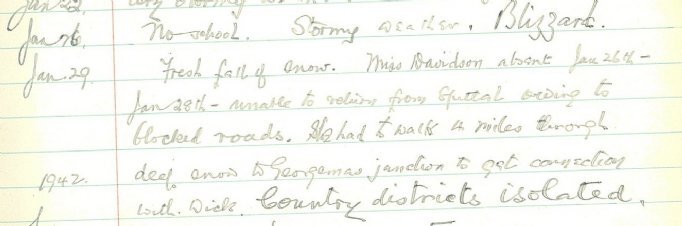 Jan. 26. No school. Stormy weather. Blizzard.
Jan. 29. Fresh fall of snow. Miss Davidson absent Jan 26th -
Jan 28th - unable to return from Spittal owing to
blocked roads. She had to walk 4 miles through
deep snow to Georgemas junction to get connection
1942. with Wick. Country districts isolated.